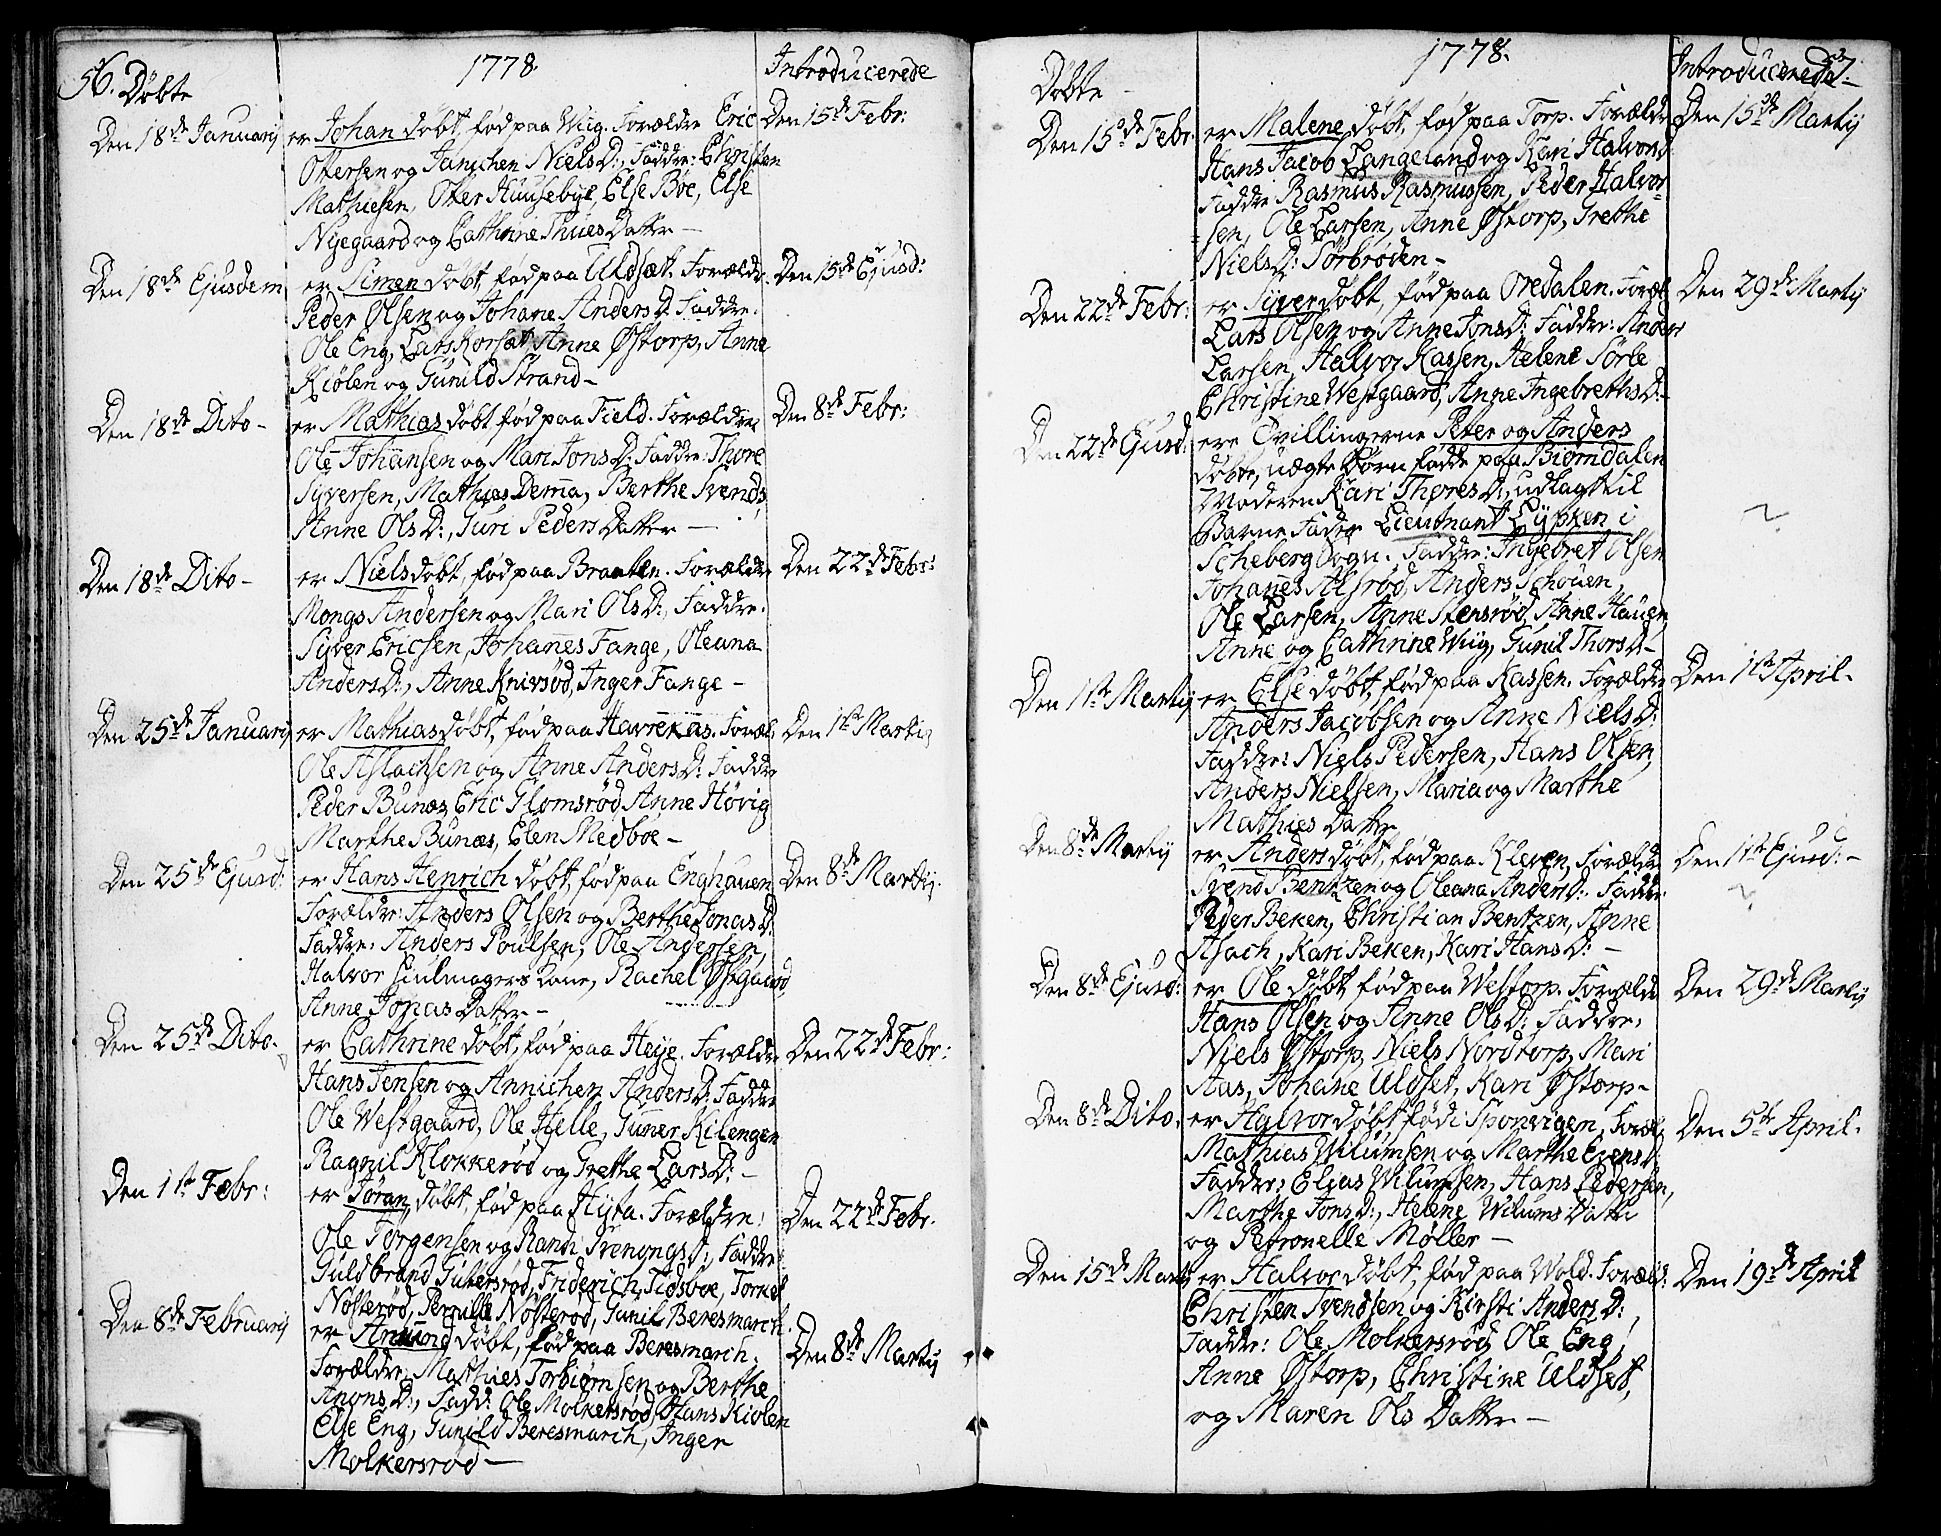 56.
Døbte
1778
Introducerede
Den 18de Januarij
er Johan døbt, fød paa Wiig. Forældre Eric
Den 15de Febr:
Ottersen og Janichen Niels D:, Faddre: Christen
Mathiesen, Otter Huusebye, Else Bøe, Else
Nyegaard og Cathrine Thues Datter –
Den 18de Ejusdem
er Simen døbt, fød paa Uldsæt. Forældr.
Den 15de Ejusd:
Peder Olsen og Johane Anders D: Faddre:
Ole Eng, Lars Korsæt, Anne Østorp, Anne
Kiølen og Gunild Strand –
Den 18de Dito –
er Mathias døbt, fød paa Field. Forældre
Den 8de Febr:
Ole Johansen og Mari Jons D: Faddre: Thore
Syversen, Mathias Dema, Berthe Svends,
Anne Ols D:, Guri Peders Datter –
Den 18de Dito –
er Niels døbt, fød paa Braaten. Forældr.
Den 22de Febr:
Mongs Andersen og Mari Ols D:, Faddre.
Syver Ericsen, Johannes Fange, Oleana
Anders D:, Anne Knivsød, Inger Fange –
Den 25de Januarij
er Mathias døbt, fød paa Havrekas. Foræl.
Den 1ste Martij
Ole Aslachsen og Anne Anders D: Faddre
Peder Bunæs, Eric Glomsrød, Anne Høvig
Marthe Bunæs, Elen Medboe –
Den 25de Ejusd:
er Hans Henrich døbt, fød paa Enghauen
Den 8de Martij.
Forældre: Anders Olsen og Berthe Jonas D:
Faddre: Anders Poulsen, Ole Andersen,
Halvor Hiulmagers Kone, Rachel Østgaard,
Anne Jonas Datter –
Den 25de Dito –
er Cathrine døbt, fød paa Heye. Forældre
Den 22de Febr:
Hans Jensen og Annichen Anders D: Faddre
Ole Westgaard, Ole Helle, Gunner Kilengen
Ragnil Klokkerød og Grethe Lars D: –
Den 1ste Febr:
er Jøran døbt, fød paa Hyta. Forældre:
Den 22de Febr.
Ole Jørgensen og Randi Svenongs D:, Faddre:
Guldbrand Gutersrød, Friderich Tidsboe, Torkel
Nosterød, Pernille Nosterød, Gunil Beresmarch.
Den 8de Februarij
er Amund døbt, fød paa Beresmarch.
Den 8de Martij
Forældre: Mathies Torbiørnsen og Berthe
Anons D:, Fadd: Ole Molkersrød, Hans Kiølen
Else Eng, Gunild Beresmarch, Inger
Molkersrød –
57.
Døbte –
1778.
Introducerede
Den 15de Febr.
er Malene døbt, fød paa Torp. Forældr
Den 15de Martij
Hans Jacob Langeland og Kari Halvors D
Faddre Rasmus Rasmussen, Peder Halvor-
sen, Ole Larsen, Anne Østorp, Grethe
Niels D: Sørbrøden –
Den 22de Febr:
er Syver døbt, fød paa Oredalen. Foræl
Den 29de Martij
Lars Olsen og Anne Jons D: Faddre: Anders
Larsen, Halvor Kassen, Helene Sørle
Christine Westgaard, Anne Ingebreths D: –
Den 22de Ejusd:
ere Tvillingerne Peter og Anders
døbte, uægte Børn fødde paa Biørndalen
Moderen Kari Thores D:, udlagt til
Barne Fader Lieutnant Lypken i
Scheberg Sogn. Faddre: Ingebret Olsen
Johanes Alsrød, Anders Schouen,
Ole Larsen, Anne Stensrød, Anne Hauen
Anne og Cathrine Wiig, Gunil Thors D –
Den 1ste Martij
er Else døbt, fød paa Kassen. Forældre
Den 1ste April –
Anders Jacobsen og Anne Niels D:
Faddre: Niels Pedersen, Hans Olsen,
Anders Nielsen, Maria og Marthe
Mathies Datter
Den 8de Martij
er Anders døbt, fød paa Kleven, Forældre
Den 1ste Ejusd: –
Svend Bentzen og Oleana Anders D:. Faddre
Peder Beken, Christian Bentzen, Anne
Asach, Kari Beken, Kari Hans D: –
Den 8de Ejusd:
er Ole døbt fød paa Westorp. Forældr
Den 29de Martij
Hans Olsen og Anne Ols D: Faddre:
Niels Østorp, Niels Nordtorp, Mari
Aas, Johane Uldset, Kari Østorp –
Den 8de Dito.
er Halvor døbt fød i Sponvigen, Foræl:
Den 5te April.
Mathias Wilumsen og Marthe Evens D:
Faddre: Elias Wilumsen, Hans Pedersen,
Marthe Jons D:, Helene Wilums Datter
og Petronelle Møller –
Den 15de Martij
er Halvor døbt, fød paa Wold. Foræld:
Den 19de April
Christen Svendsen og Kirsti Anders D:,
Faddre: Ole Molkersrød, Ole Eng,
Anne Østorp, Christine Uldset,
og Maren Ols Datter –